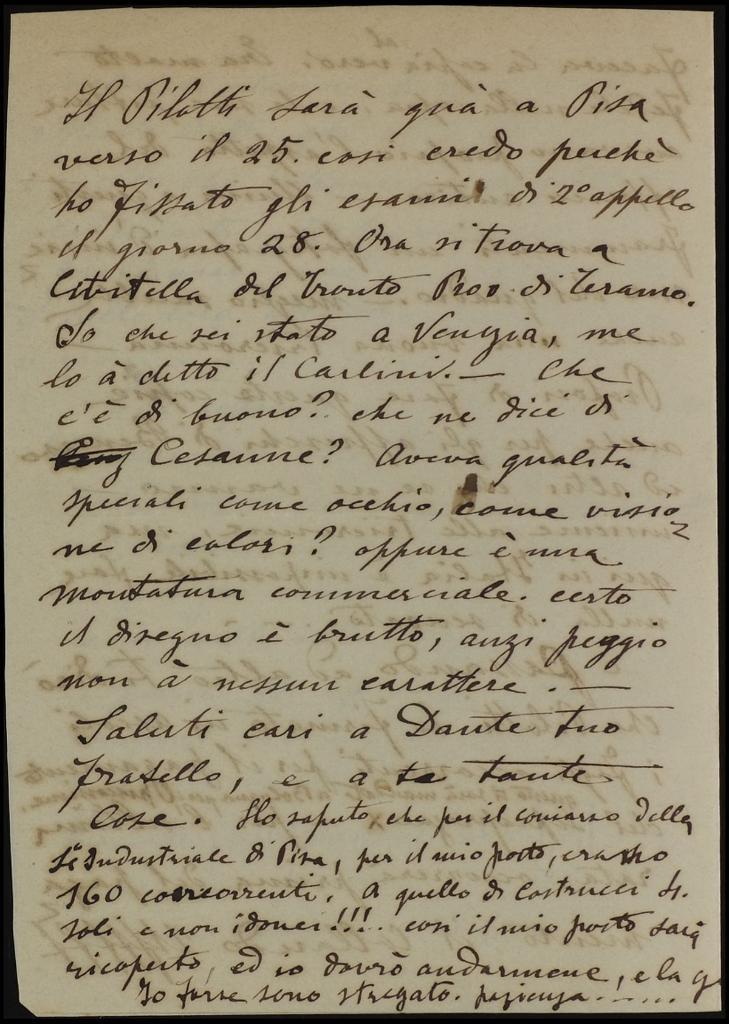 Il Pilotti sarà quà a Pisa
verso il 25. così credo perchè
ho fissato gli esami di 2º appello
il giorno 28. Ora si trova a
Civitella del Tronto Prov. di Teramo.
So che sei stato a Venezia, me
lo à detto il Carlini. — Che
c'è di buono? che ne dici di
Cesanne? Aveva qualità
speciali come occhio, come visio
ne di colori? oppure è una
montatura commerciale. certo
il disegno è brutto, anzi peggio
non à nessun carattere. —
Saluti cari a Dante tuo
fratello, e a te tante
cose. Ho saputo che per il concorso della
Sc. Industriale di Pisa, per il mio posto, erano
160 concorrenti. A quello di Castrucci 4.
soli e non idonei!!!. così il mio posto sarà
ricoperto, ed io dovrò andarmene, e la
Io forse sono stregato. pazienza......